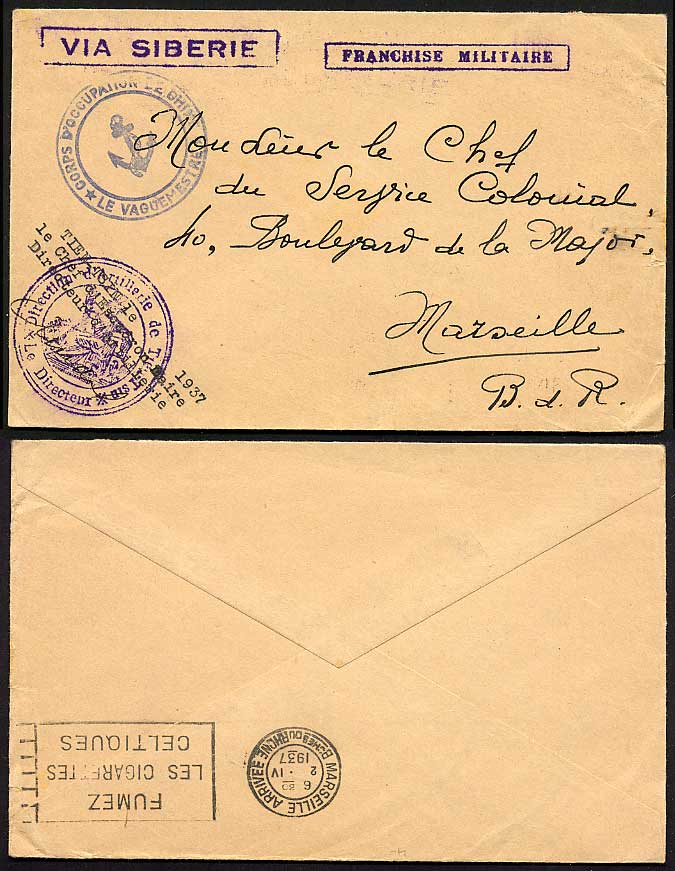 VIA SIBERIE
FRANCHISE MILITAIRE
CORPS D'OCCUPATION DE CHINE
★ LE VAGUEMESTRE
Monsieur le Chef
du Service Colonial,
40, Boulevard de la Major,
Marseille
B. d. R.
TIEN
le
1937
le Chef d'Es
Directeur
Direction d'Artillerie de
Directeur
FUMEZ
LES CIGARETTES
CELTIQUES
MARSEILLE ARRIVEE
6 30
2 · IV
1937
BCHES DU RHONE